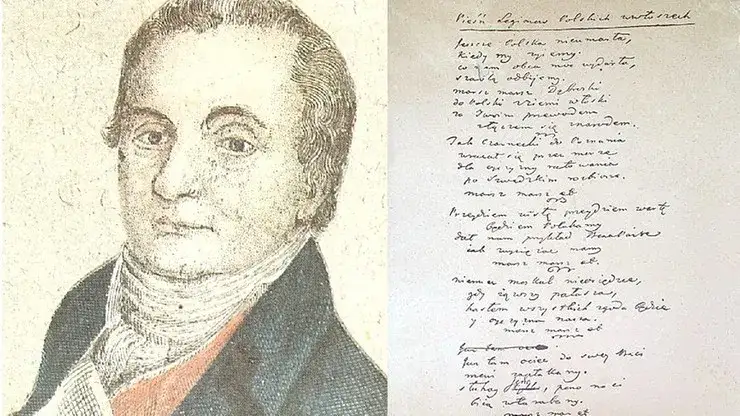 Pieśń Legionów Polskich we włoszech
Jeszcze Polska nie umarła,
kiedy my żyiemy
co nam obca moc wydarła,
szablą odbijemy.
marsz marsz Dąbrowski
do Polski z ziemi włoski
za Twoim przewodem
złączem się z narodem.
Jak Czarnecki do Poznania
wracał się przez morze
dla oyczyzny ratowania
po szwedzkim rozbiorze.
marsz marsz et
Przeydziem wisłę przeydziem wartę
będziem Polakamy
dał nam przykład Bonaparte
jak zwyciężać mamy
marsz marsz et.
niemiec moskal nieosiędzie,
gdy jąwszy pałasza,
hasłem wszystkich zgoda będzie
y oyczyzna nasza.
marsz marsz et
Już tam
Już tam ociec do swey Basi
mówi zapłakany.
słuchay, pono nasi
biią w tarabany.
marsz marsz et